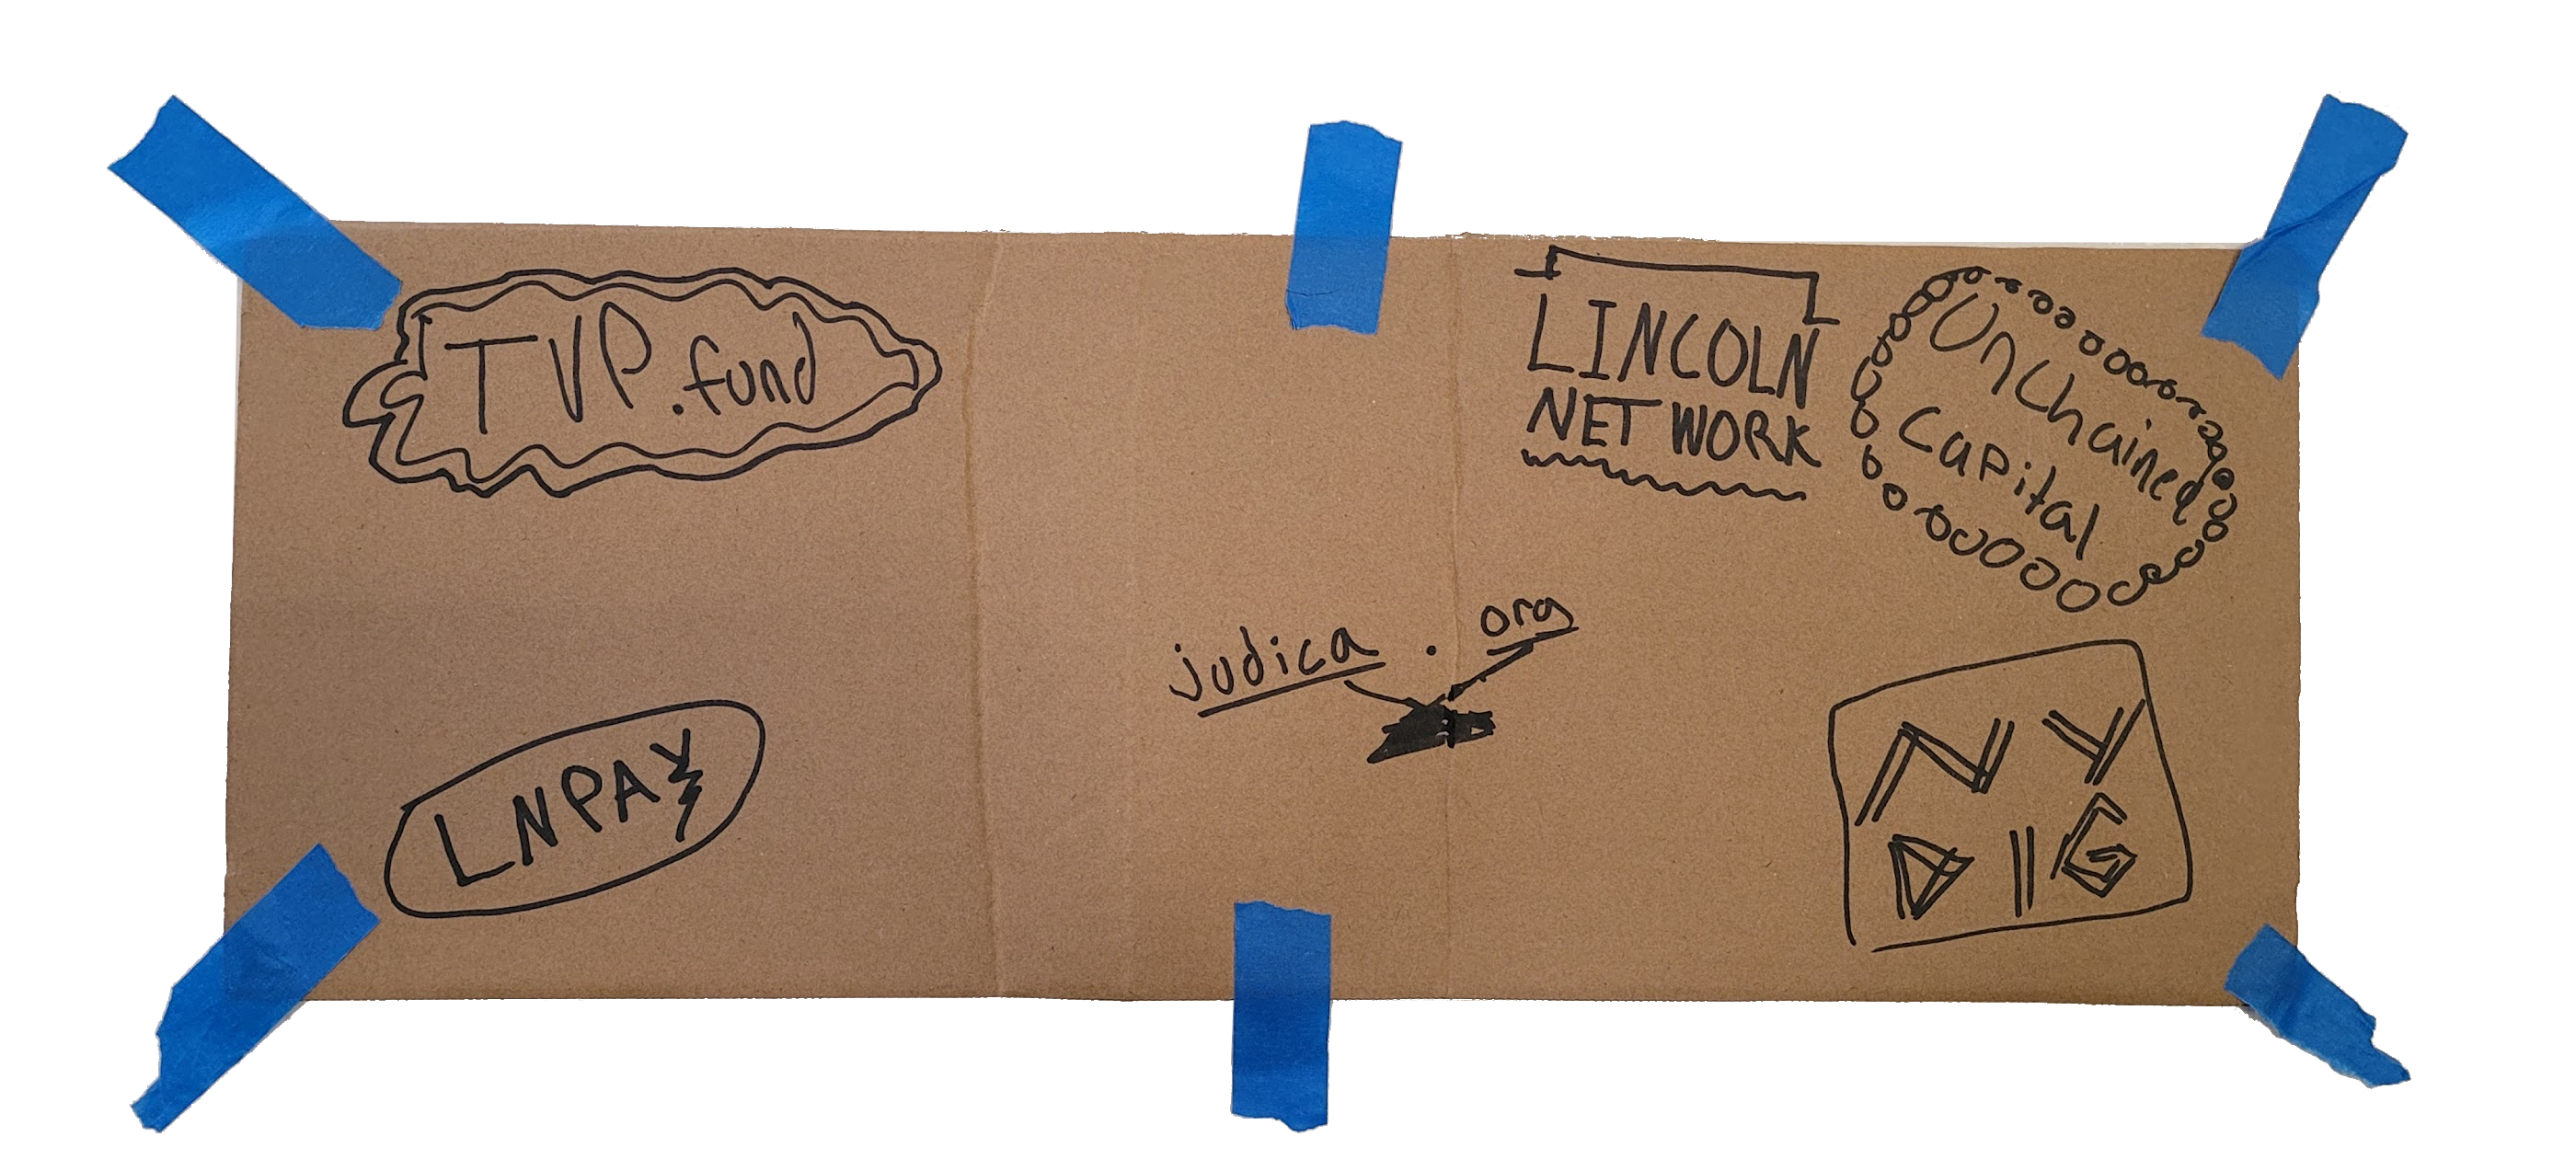 TVP.fund
LINCOLN
NETWORK
UnChained
Capital
judica.org
LNPAY
NY
DIG